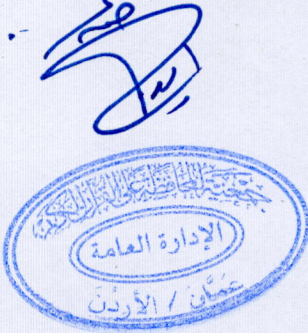 جمعية المحافظة على القرآن الكريم
الإدارة العامة
عمّان / الأردن